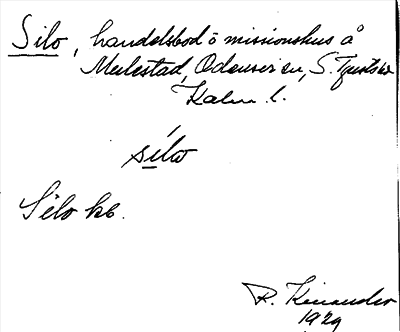 Silo, handelsbod o missionshus å
Mulestad, Odensvi sn, S. Tjusts hd
Kalm. l.
sílω
Silo kb.
R. Kinander
1929